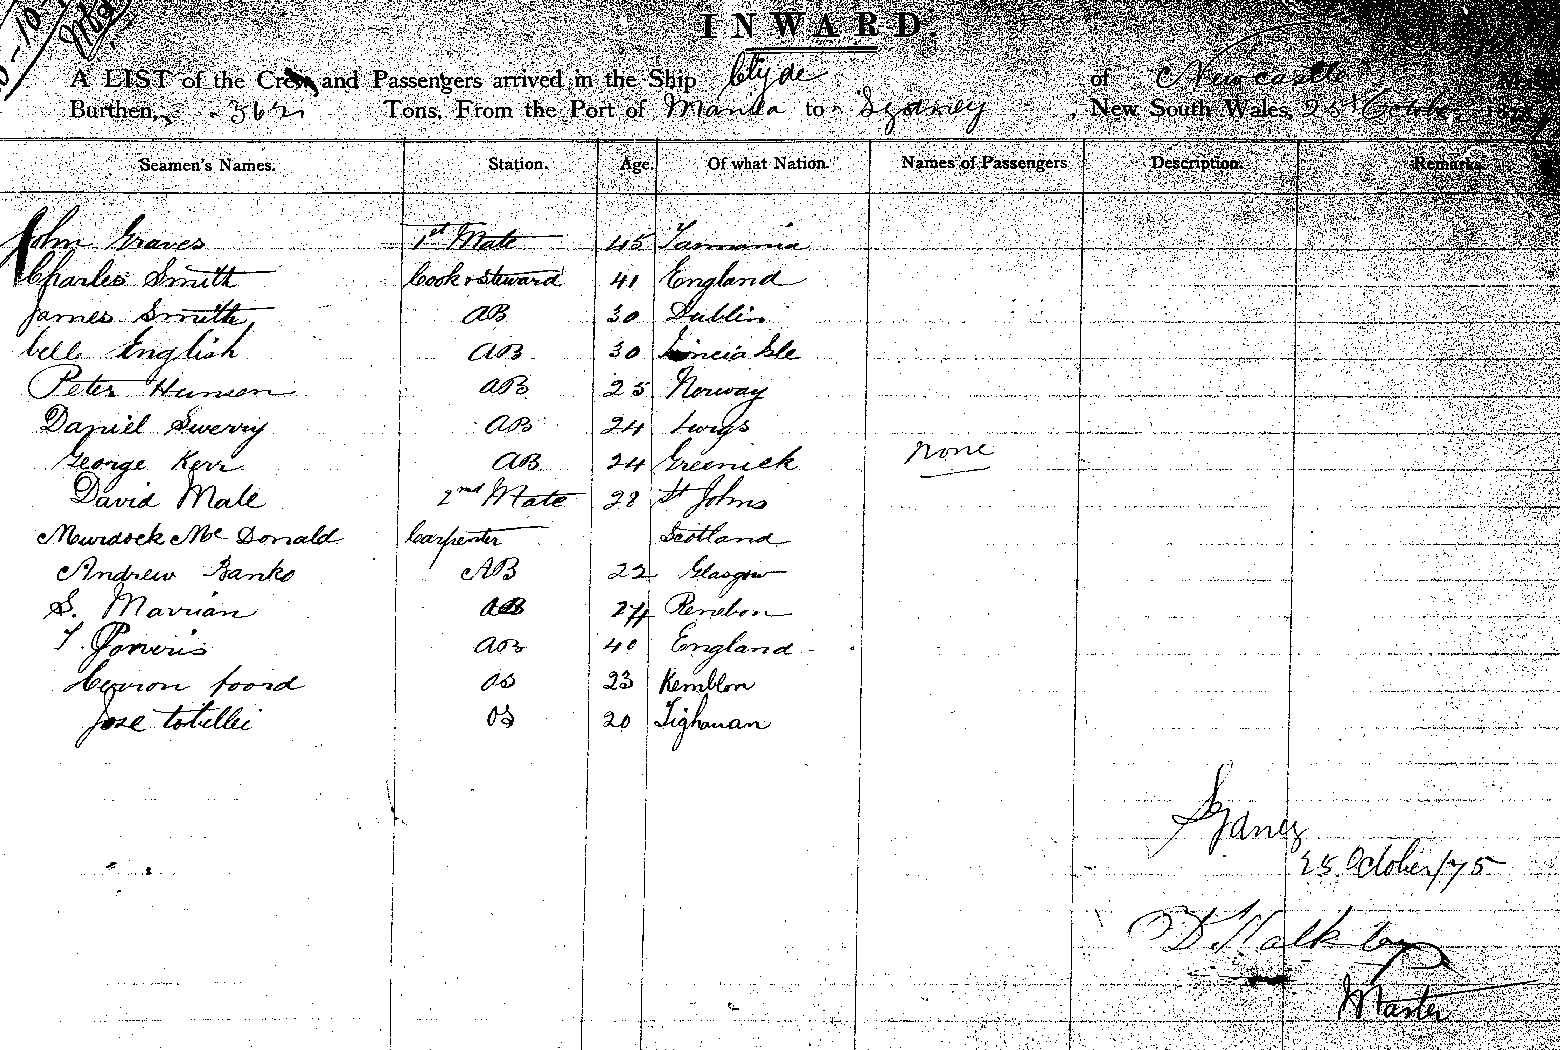 INWARD.
A LIST of the Crew and Passengers arrived in the Ship Clyde of Newcastle
Burthen, 362 Tons, From the Port of Manila to Sydney, New South Wales, 25th October
Seamen's Names. Station. Age. Of what Nation. Names of Passengers Description. Remarks.
John Graves 1st Mate 45 Tasmania
Charles Smith Cook & Steward 41 England
James Smith AB 30 Dublin
English AB 30 Isle
Peter Hanson AB 25 Norway
Daniel Swerry AB 24
George Kerr AB 24 Greenick
none
David Male 2nd Mate 28 St Johns
Murdock Mc Donald Carpenter Scotland
Andrew Banks AB 22 Glasgow
S. Marrian AB 24
AB 40 England
foord OS 23 Kemblon
Jose OS 20
Sydney
25 October/75
Master